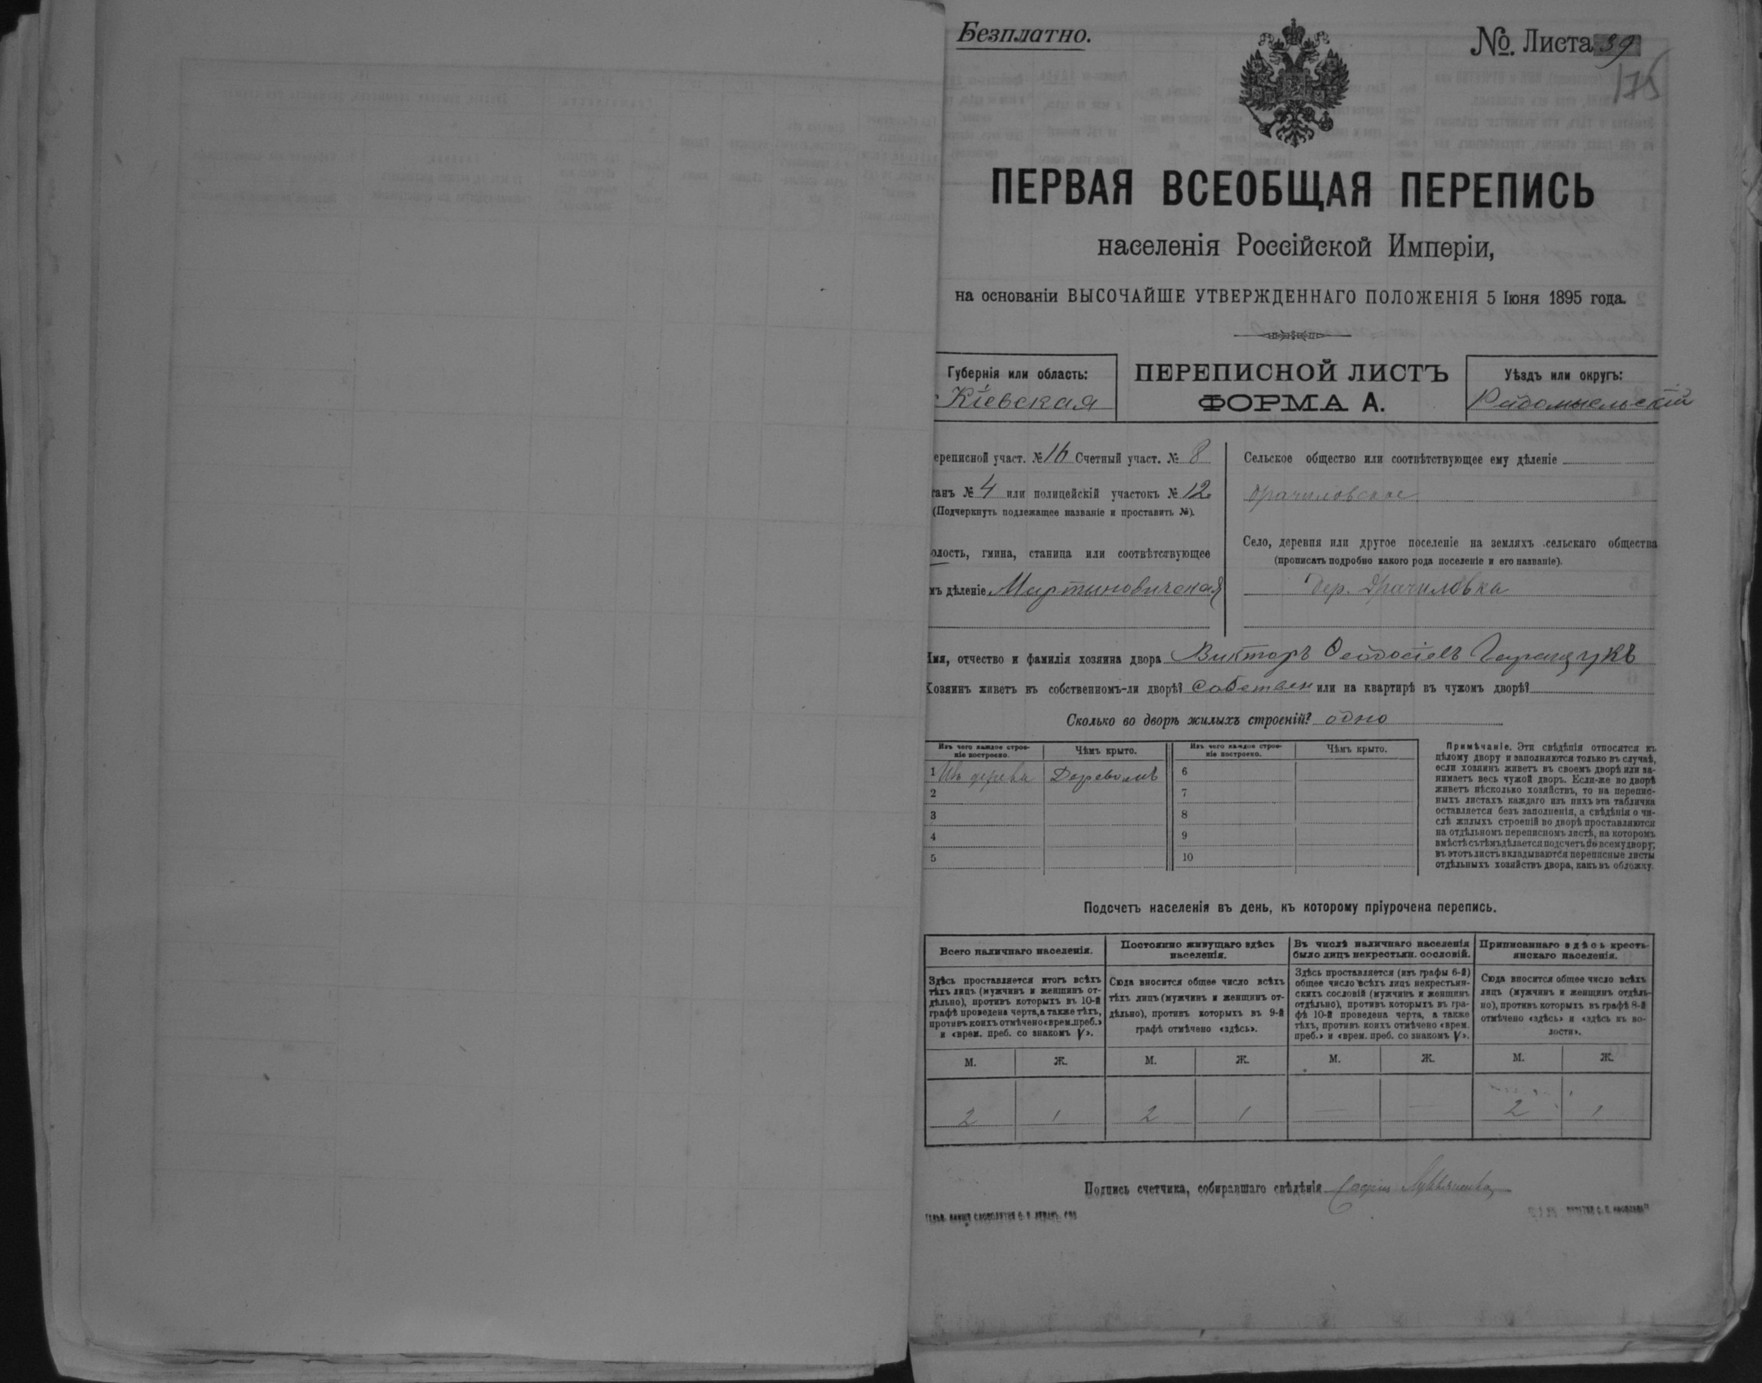 Безплатно.
№ Листа 39
175
ПЕРВАЯ ВСЕОБЩАЯ ПЕРЕПИСЬ
населенія Россійской Имперіи,
на основаніи ВЫСОЧАЙШЕ УТВЕРЖДЕННАГО ПОЛОЖЕНІЯ 5 Іюня 1895 года.
Губернія или область:
Кіевская
ПЕРЕПИСНОЙ ЛИСТЪ
ФОРМА А.
Уѣздъ или округъ:
Радомысльскій
ереписной участ. № 16 Счетный участ. № 8
танъ № 4 или полицейскій участокъ № 12
(Подчеркнуть подлежащее названіе и проставить №).
олость, гмина, станица или соотвѣтствующее
мъ дѣленіе Мартиновичская
Сельское общество или соотвѣтствующее ему дѣленіе
Драчиловское
Село, деревня или другое поселеніе на земляхъ сельскаго общества
(прописать подробно какого рода поселеніе и его названіе).
Дер. Драчиловка
Имя, отчество и фамилія хозяина двора Викторъ Феодосіевъ Геращукъ
Хозяинъ живетъ въ собственномъ-ли дворѣ? собствен или на квартирѣ въ чужомъ дворѣ?
Сколько во дворѣ жилыхъ строеній? одно
Изъ чего каждое строеніе построено. Чѣмъ крыто. Изъ чего каждое строеніе построено. Чѣмъ крыто.
1 Изъ дерева Деревомъ 6
2 7
3 8
4 9
5 10
Примѣчаніе. Эти свѣдѣнія относятся къ
цѣлому двору и заполняются только въ случаѣ,
если хозяинъ живетъ въ своемъ дворѣ или за-
нимаетъ весь чужой дворъ. Если-же во дворѣ
живетъ нѣсколько хозяйствъ, то на перепис-
ныхъ листахъ каждаго изъ нихъ эта табличка
оставляется безъ заполненія, а свѣдѣнія о чи-
слѣ жилыхъ строеній во дворѣ проставляются
на отдѣльномъ переписномъ листѣ, на которомъ
вмѣстѣ съ тѣмъ дѣлается подсчетъ по всему двору;
въ этотъ листъ вкладываются переписные листы
отдѣльныхъ хозяйствъ двора, какъ въ обложку.
Подсчетъ населенія въ день, къ которому пріурочена перепись.
Всего наличнаго населенія.
Здѣсь проставляется итогъ всѣхъ
тѣхъ лицъ (мужчинъ и женщинъ от-
дѣльно), противъ которыхъ въ 10-й
графѣ проведена черта, а также тѣхъ,
противъ коихъ отмѣчено «врем. преб.»
и «врем. преб. со знакомъ V».
Постоянно живущаго здѣсь
населенія.
Сюда вносится общее число всѣхъ
тѣхъ лицъ (мужчинъ и женщинъ от-
дѣльно), противъ которыхъ въ 9-й
графѣ отмѣчено «здѣсь».
Въ числѣ наличнаго населенія
было лицъ некрестьян. сословій.
Здѣсь проставляется (изъ графы 6-й)
общее число всѣхъ лицъ некрестьян-
скихъ сословій (мужчинъ и женщинъ
отдѣльно), противъ которыхъ въ гра-
фѣ 10-й проведена черта, а также
тѣхъ, противъ коихъ отмѣчено «врем.
преб.» и «врем. преб. со знакомъ V».
Приписаннаго здѣсь кресть-
янскаго населенія.
Сюда вносится общее число всѣхъ
лицъ (мужчинъ и женщинъ отдѣль-
но), противъ которыхъ въ графѣ 8-й
отмѣчено «здѣсь» и «здѣсь въ во-
лости».
М. Ж. М. Ж. М. Ж. М. Ж.
2 1 2 1 — — 2 1
Подпись счетчика, собиравшаго свѣдѣнія